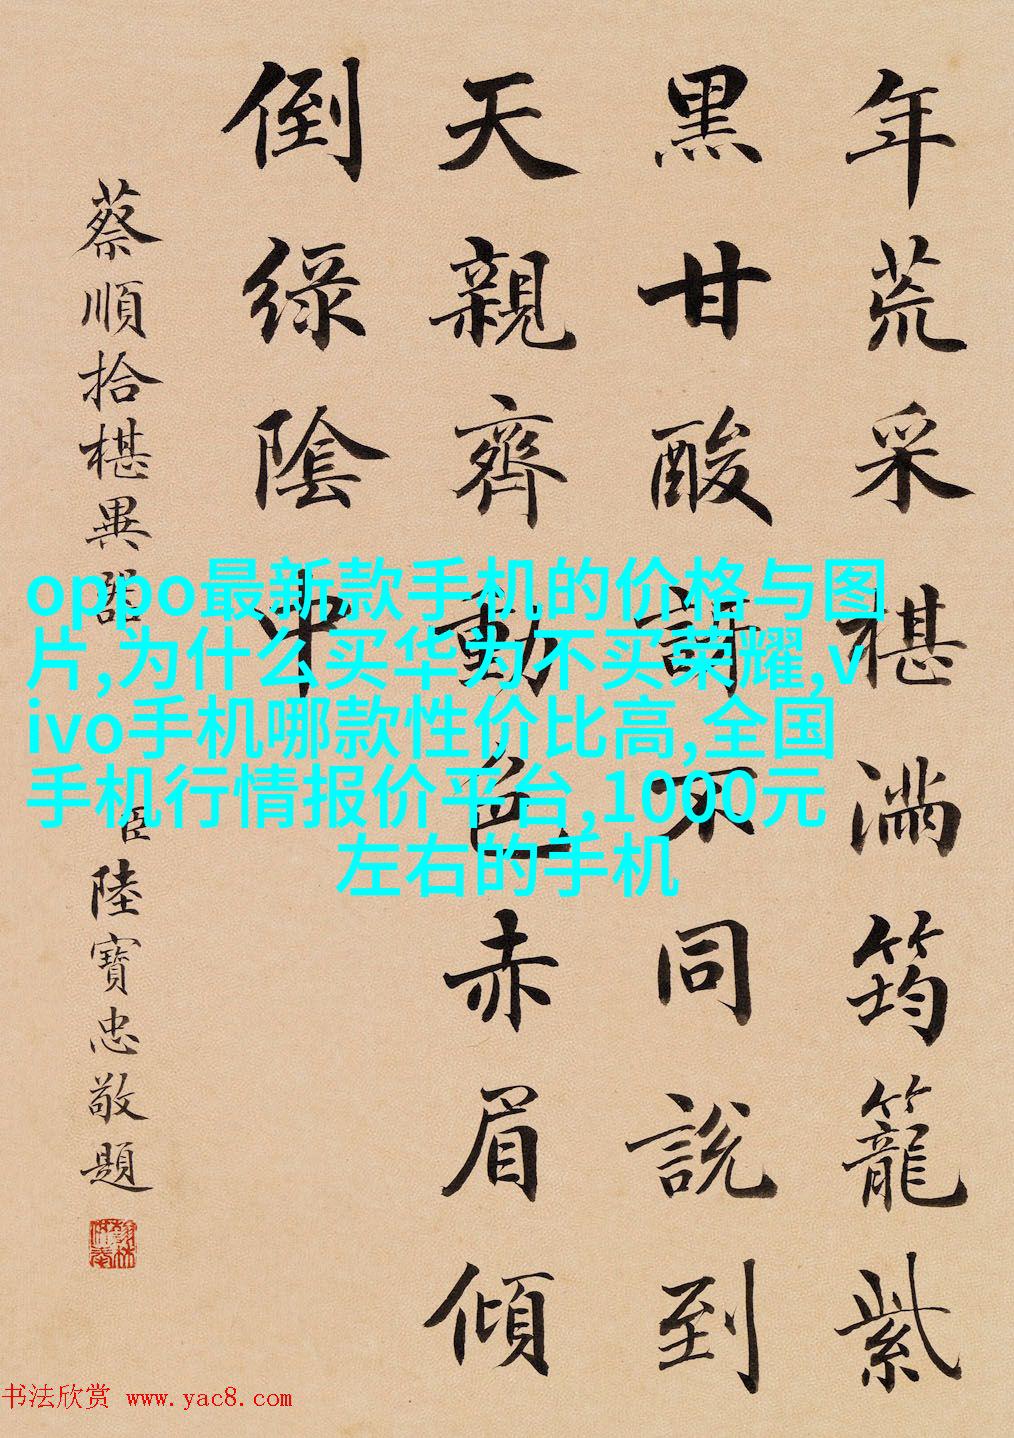 年荒采椹满筠籠紫
黑甘酸請不同說到
天親齊動色赤眉傾
倒綠陰中
蔡順拾椹異器
臣陸寶忠敬題
oppo最新款手机的价格与图
片,为什么买华为不买荣耀,v
ivo手机哪款性价比高,全国
手机行情报价平台,1000元
左右的手机
书法欣赏 www.yac8.com